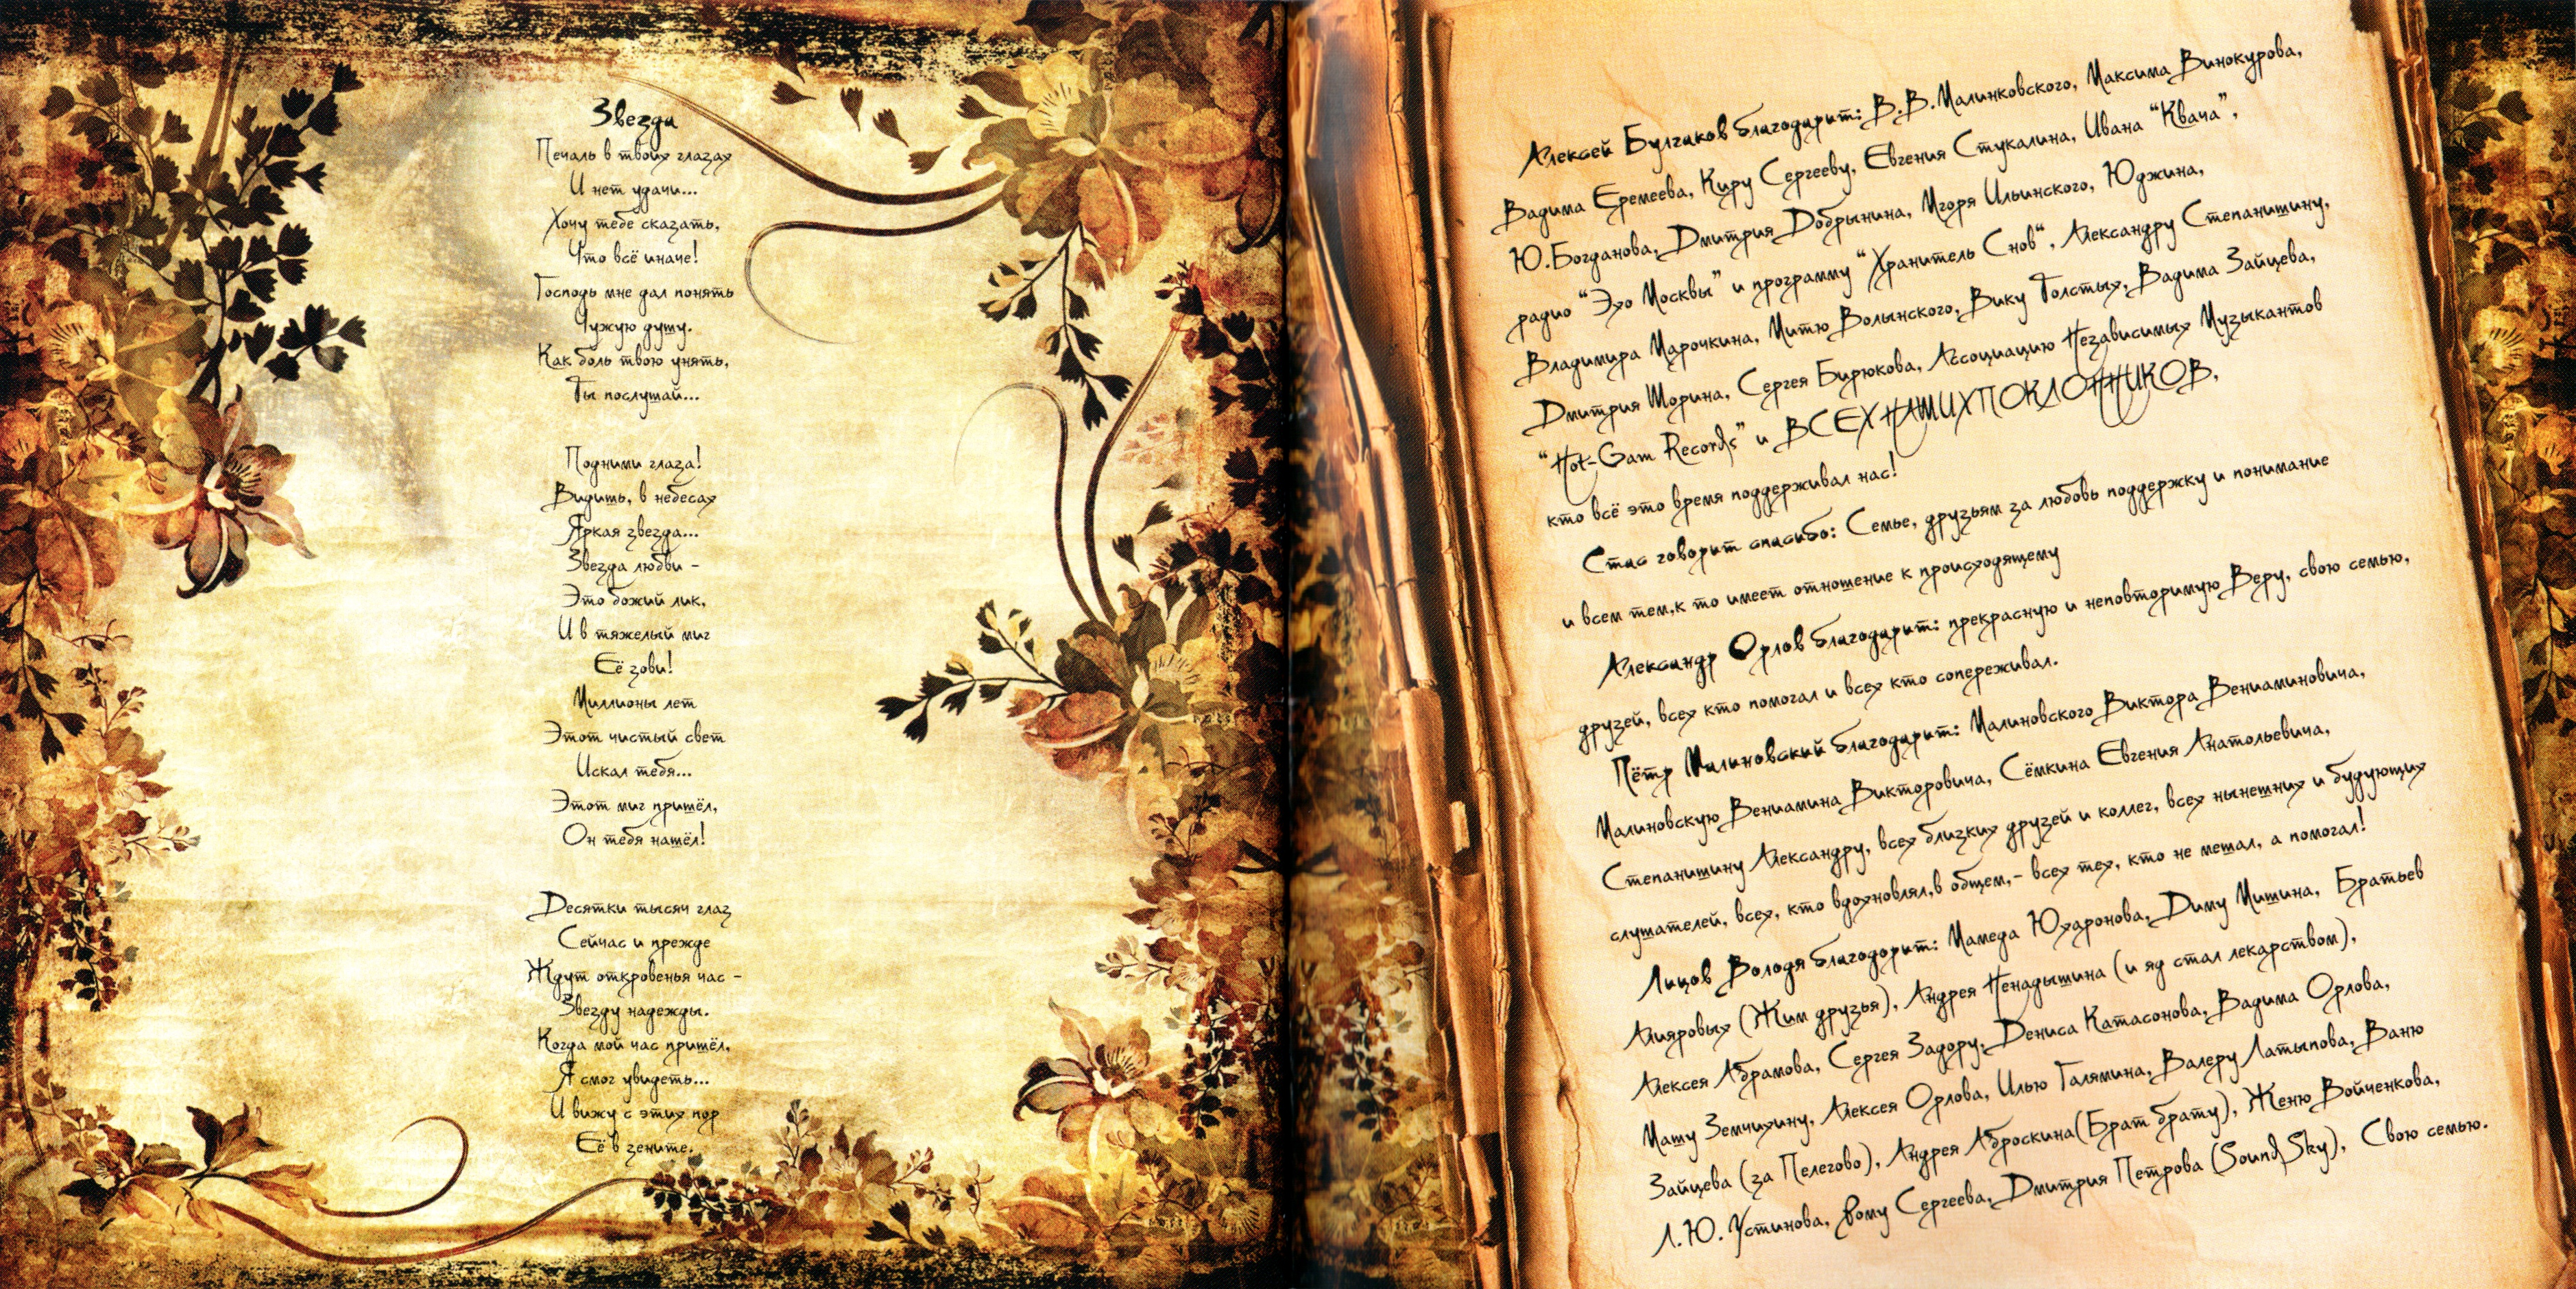 Звезда
Печаль в твоих глазах
И нет удачи...
Хочу тебе сказать,
Что всё иначе!
Господь мне дал понять
Чужую душу.
Как боль твою унять,
Ты послушай...
Подними глаза!
Видишь, в небесах
Яркая звезда...
Звезда любви -
Это божий лик,
И в тяжелый миг
Её зови!
Миллионы лет
Этот чистый свет
Искал тебя...
Этот миг пришёл,
Он тебя нашёл!
Десятки тысяч глаз
Сейчас и прежде
Ждут откровенья час -
Звезду надежды.
Когда мой час пришёл,
Я смог увидеть...
И вижу с этих пор
Её в зените.
Алексей Булгаков благодарит: В.В.Малинковского, Максима Винокурова,
Вадима Еремеева, Киру Сергееву, Евгения Стукалина, Ивана "Квача",
Ю.Богданова, Дмитрия Добрынина, Игоря Ильинского, Юджина,
радио "Эхо Москвы" и программу "Хранитель Снов", Александру Степанишину,
Владимира Марочкина, Митю Волынского, Вику Толстых, Вадима Зайцева,
Дмитрия Шорина, Сергея Бирюкова, Ассоциацию Независимых Музыкантов
"Hot-Gam Records" и ВСЕХ НАШИХ ПОКЛОННИКОВ,
кто всё это время поддерживал нас!
Стас говорит спасибо: Семье, друзьям за любовь поддержку и понимание
и всем тем,к то имеет отношение к происходящему
Александр Орлов благодарит: прекрасную и неповторимую Веру, свою семью,
друзей, всех кто помогал и всех кто сопереживал.
Пётр Малиновский благодарит: Малиновского Виктора Вениаминовича,
Малиновскую Вениамина Викторовича, Сёмкина Евгения Анатольевича,
Степанишину Александру, всех близких друзей и коллег, всех нынешних и будующих
слушателей, всех, кто вдохновлял,в общем,- всех тех, кто не мешал, а помогал!
Лицов Володя благодорит: Мамеда Юхаронова, Диму Мишина, Братьев
Алияровых (Жим друзья), Андрея Ненадышина (и яд стал лекарством),
Алексея Абрамова, Сергея Задору, Дениса Катасонова, Вадима Орлова,
Машу Земчихину, Алексея Орлова, Илью Галямина, Валеру Латыпова, Ваню
Зайцева (за Пелегово), Андрея Аброскина(Брат брату), Женю Войченкова,
Л.Ю. Устинова, Рому Сергеева, Дмитрия Петрова (Sound Sky), Свою семью.